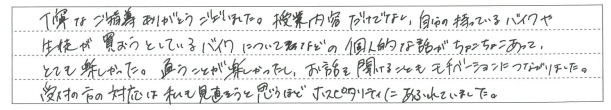 丁寧なご指導ありがとうございました。授業内容だけでなく、自分の持っているバイクや
生徒が買おうとしているバイクについてなどの個人的な話がちょこちょこあって、
とても楽しかった。通うことが楽しかったし、お話を聞けることもモチベーションにつながりました。
受付の方の対応は私も見直そうと思うほどホスピタリティにあふれていました。